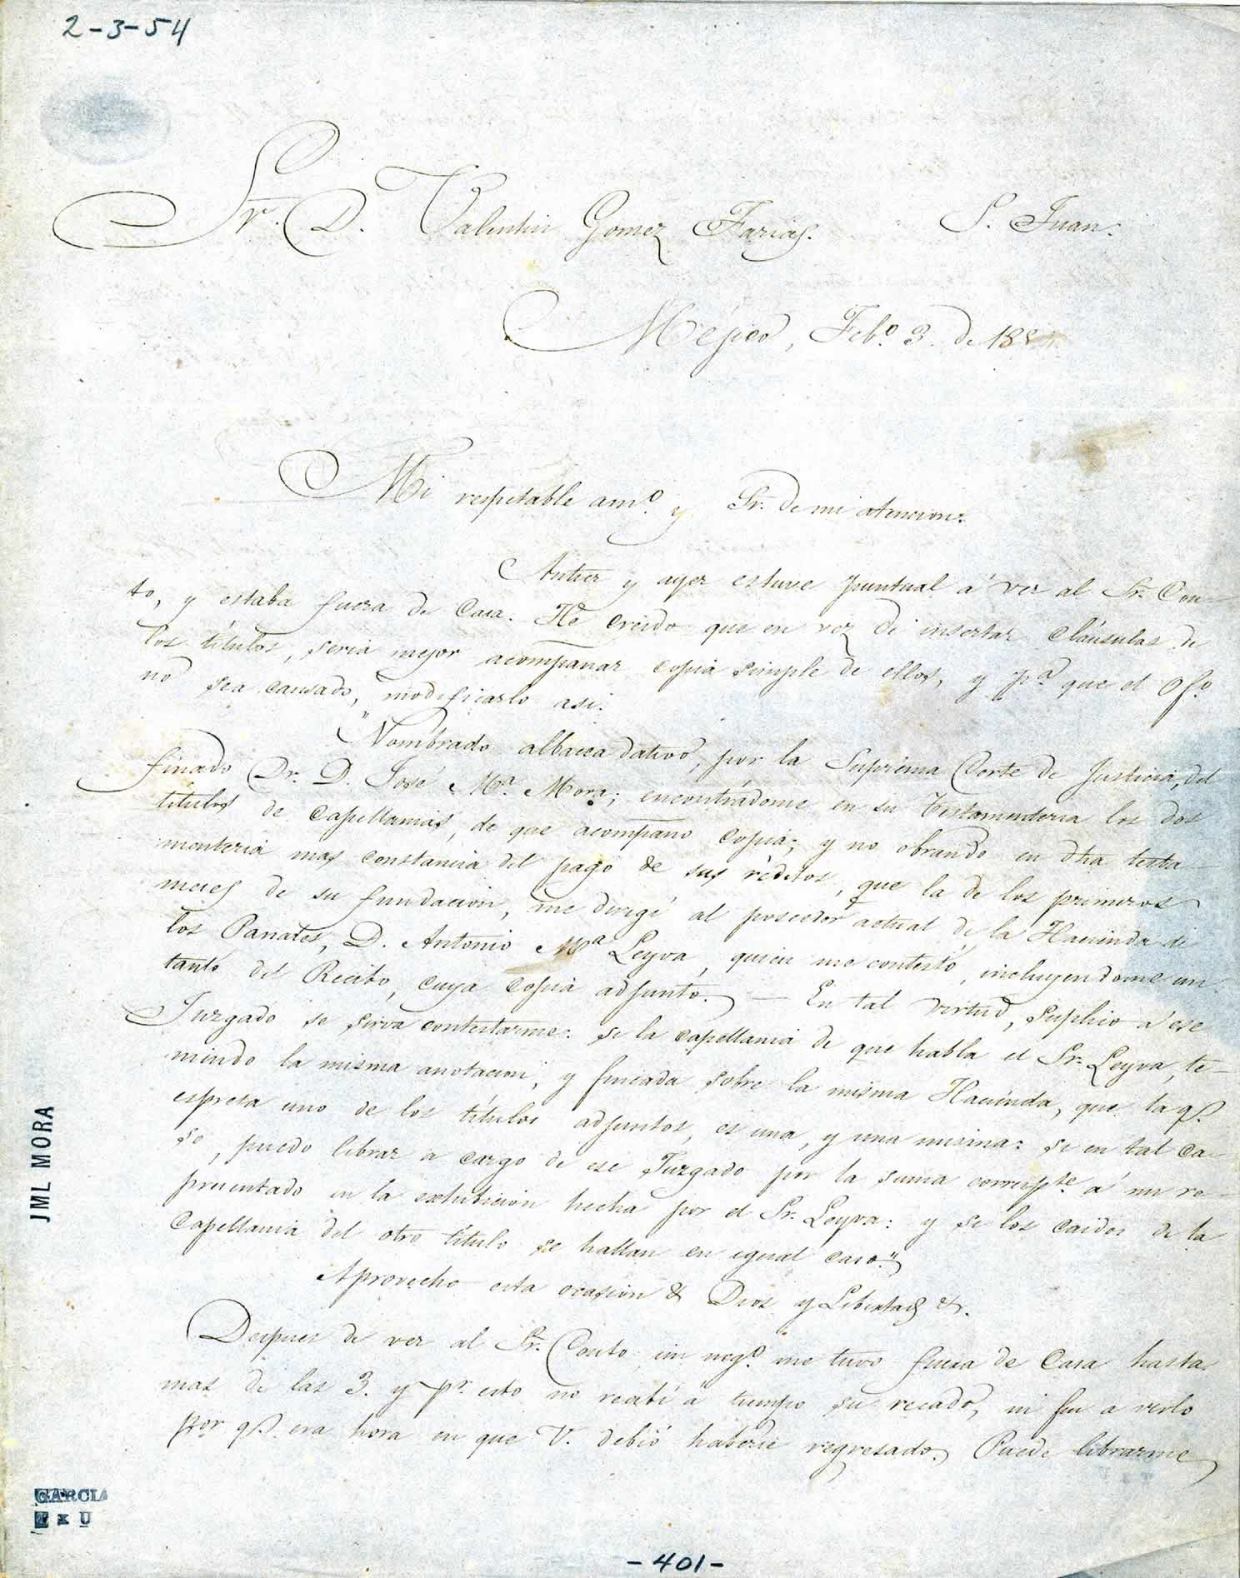 2-3-54
Sr. D. Valentin Gomez Farias. S. Juan.
Méjico, Febo. 3. de 185
Mi respetable amo. y Sr. de mi atencion:
Antier y ayer estuve puntual á ver al Sr. Cou-
to, y estaba fuera de Casa. He creido que en vez de insertar cláusulas de
los títulos, seria mejor acompañar copia simple de ellos, y pa. que el Ofo.
no sea cansado, modificarlo asi:
"Nombrado albacea dativo, por la Suprema Corte de Justicia, del
finado Dr. D. José Ma. Mora; encontrádome en su Testamenteria los dos
titulos de Capellanias, de que acompaño copia; y no obrando en dha testa
menteria mas constancia del pago de sus réditos, que la de los primeros
meces de su fundacion, me dirigí al poseedor actual de la Hacienda de
los Panales, D. Antonio Ma. Leyva, quien me contestó, incluyendome un
tanto del Recibo, cuya copia adjunto. — En tal virtud, suplico a ese
Juzgado se sirva contestarme: si la capellania de que habla el Sr. Leyva, te-
niendo la misma anotacion, y fincada sobre la misma Hacienda, que la q.
espresa uno de los titulos adjuntos, es una, y una misma: si en tal ca-
so, puedo librar a cargo de ese Juzgado por la suma correspte. a mi re-
presentado en la exhibicion hecha por el Sr. Leyva: y si los caidos de la
Capellania del otro título se hallan en igual caso."
Aprovecho esta ocasion & Dios y Libertad &.
Despues de ver al Sr. Couto un nego. me tuvo fuera de Casa hasta
mas de las 3. y pr. esto no recibí á tiempo su recado, ni fui a verlo
por q. era hora en que V. debió haberse regresado. Puede librarme
JML MORA
GARCIA
- 401 -